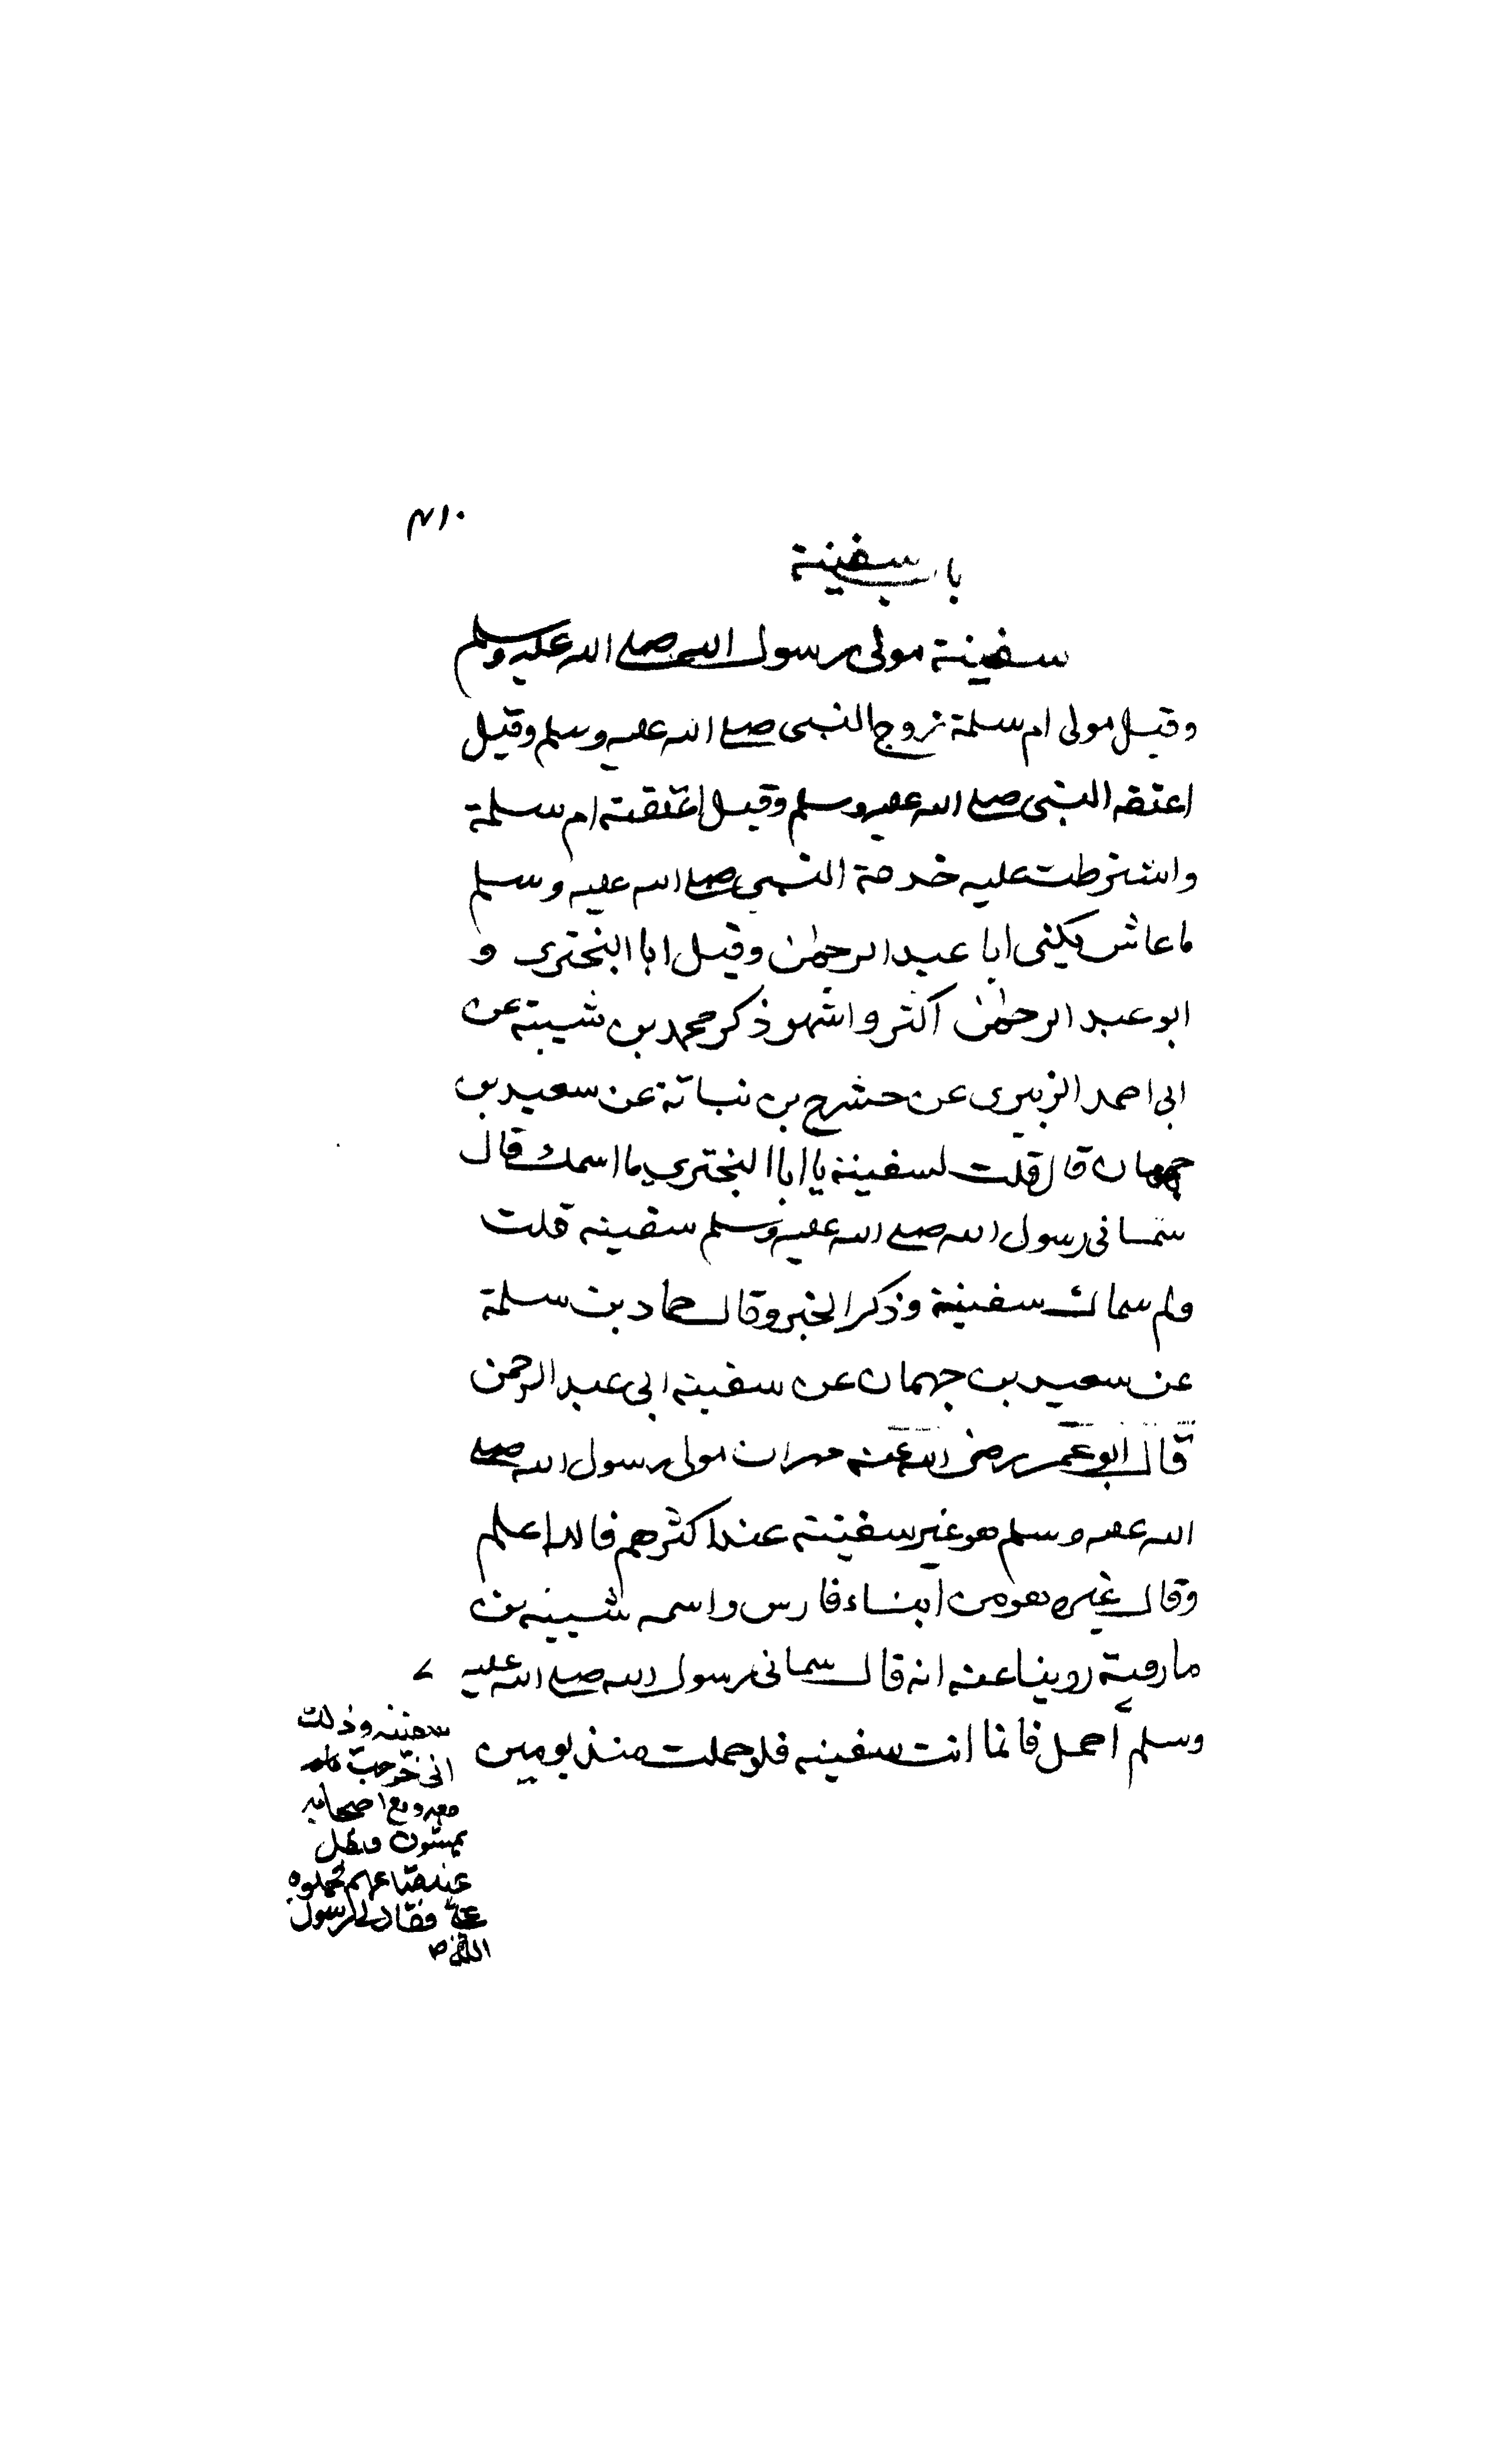 باب سفينة
سفينة مولى رسول الله صلى الله عليه وسلم
وقيل مولى ام سلمة زوج النبى صلى الله عليه وسلم وقيل
اعتقه النبى صلى الله عليه وسلم وقيل اعتقته ام سلمة
واشترطت عليه خدمة النبى صلى الله عليه وسلم
ما عاش يكنى ابا عبد الرحمٰن وقيل ابا البختري و
ابو عبد الرحمٰن اكثر واشهر ذكر محمد بن شيبة عن
ابى احمد الزبيرى عن حشرج بن نباتة عن سعيد بن
جمهان قال قلت لسفينة يا ابا البختري ما اسمك قال
سمانى رسول الله صلى الله عليه وسلم سفينه قلت
ولم سماك سفينة وذكر الخبر وقال حماد بن سلمة
عن سعيد بن جهمان عن سفينه ابى عبد الرحمن
قال ابو عمر رضى الله عنه مهران مولى رسول الله صلى
الله عليه وسلم هو غير سفينة عند اكثرهم فالله اعلم
وقال غيره هو من ابناء فارس واسمه شبينه بن
مارمية روينا عنه انه قال سمانى رسول الله صلى الله عليه
وسلم احمل فانما انت سفينه فلو حملت منذ يومين
سفينه وذلك
انى خرجت
معه ومع اصحابه
يمشون فثقل
عليهم متاعهم فحملوه
على فقال لى رسول
الله ص